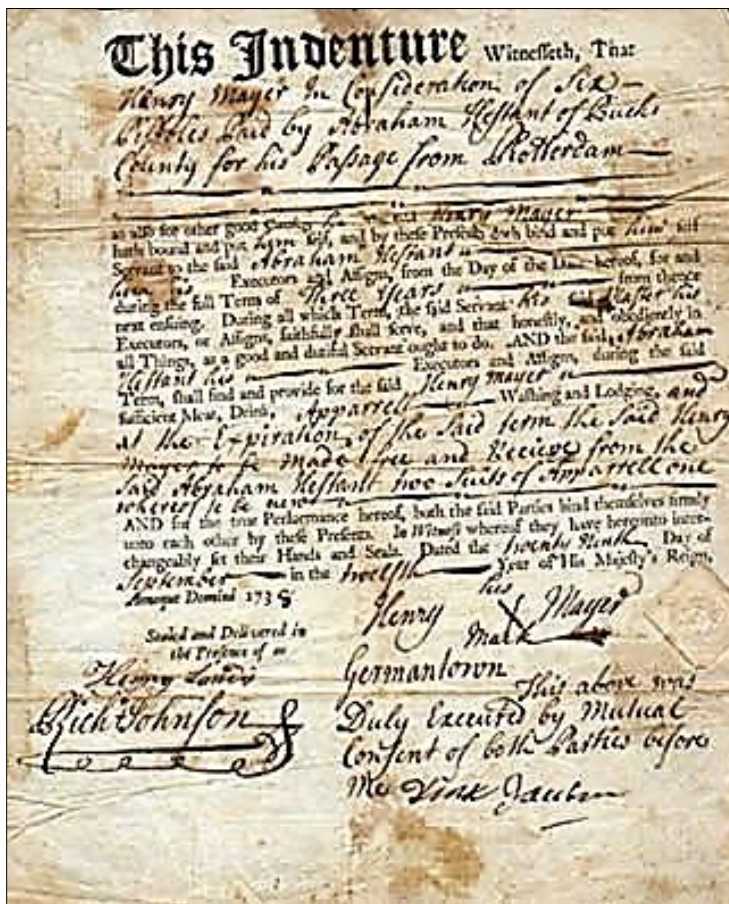 This Indenture Witnesseth, That
Henry Mayer In Consideration of Six
Pistoles Paid by Abraham Hestant of Bucks
County for his Passage from Rotterdam
as also for other good Causes he the said Henry Mayer
hath bound and put him self, and by these Presents doth bind and put him self
Servant to the said Abraham Hestant
him his Executors and Assigns, from the Day of the Date hereof, for and
during the full Term of Three Years from thence
next ensuing. During all which Term, the said Servant his said Master his
Executors, or Assigns, faithfully shall serve, and that honestly, and obediently in
all Things, as a good and dutiful Servant ought to do. AND the said Abraham
Hestant his Executors and Assigns, during the said
Term, shall find and provide for the said Henry Mayer
sufficient Meat, Drink, Apparrell Washing and Lodging, and
at the Expiration of the Said term the Said Henry
Mayer to be made free and Recieve from the
Said Abraham Hestant two Suits of Apparrell one
whereof to be new
AND for the true Performance hereof, both the said Parties bind themselves firmly
unto each other by these Presents. In Witness whereof they have hereunto inter-
changeably set their Hands and Seals. Dated the twenty Ninth Day of
September in the twelfth Year of His Majesty's Reign,
Annoque Domini 1738
his
Henry Mayer
Mark
Sealed and Delivered in
the Presence of
Henry
Rich Johnson
Germantown
This above was
Duly Executed by Mutual
Consent of both Parties before
Me